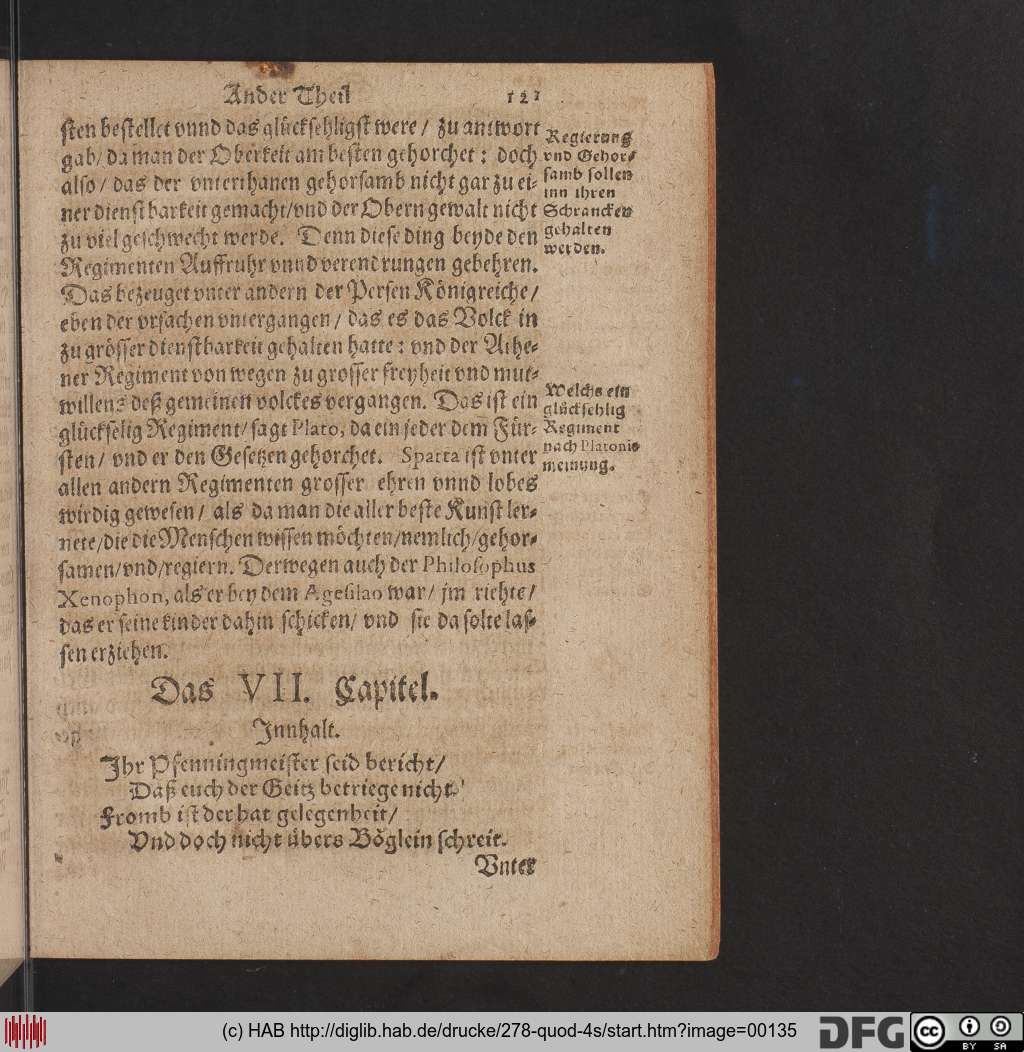 Ander Theil 121
sten bestellet vnnd das glücksehligst were / zu antwort
gab / da man der Oberkeit am besten gehorchet : doch
also / das der vnterthanen gehorsamb nicht gar zu ei-
ner dienstbarkeit gemacht / vnd der Obern gewalt nicht
zu viel geschwecht werde. Denn diese ding beyde den
Regimenten Auffruhr vnnd verendrungen gebehren.
Das bezeuget vnter andern der Persen Königreiche /
eben der vrsachen vntergangen / das es das Volck in
zu grösser dienstbarkeit gehalten hatte : vnd der Athe-
ner Regiment von wegen zu grosser freyheit vnd mut-
willens deß gemeinen volckes vergangen. Das ist ein
glückselig Regiment / sagt Plato, da ein jeder dem Für-
sten / vnd er den Gesetzen gehorchet. Sparta ist vnter
allen andern Regimenten grosser ehren vnnd lobes
wirdig gewesen / als da man die aller beste Kunst ler-
nete / die die Menschen wissen möchten / nemlich / gehor-
samen / vnd / regiern. Derwegen auch der Philosophus
Xenophon, als er bey dem Agesilao war / jm riehte /
das er seine kinder dahin schicken / vnd sie da solte las-
sen erziehen.
Regierung
vnd Gehor-
samb sollen
inn ihren
Schrancken
gehalten
werden.
Welchs ein
glücksehlig
Regiment
nach Platonis
meinung.
Das VII. Capitel.
Innhalt.
Ihr Pfenningmeister seid bericht /
Daß euch der Geitz betriege nicht.
Fromb ist der hat gelegenheit /
Vnd doch nicht übers Böglein schreit.
Vnter
(c) HAB http://diglib.hab.de/drucke/278-quod-4s/start.htm?image=00135
DFG
cc BY SA